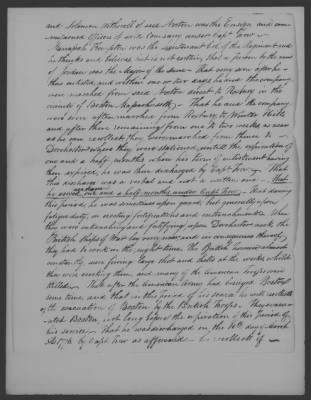 and Solomon Withwell of said Norton was the Ensign and com-
missioned officers of said Company under Capt Trow —
Marshall, Templeton was the Lieutenant Col. of the Regiment and
he thinks and believes but is not certain, that a person by the name
of Jordan was the Major of the same — that very soon after he
thus enlisted, and within one or two days he and the company
were marched from said Norton direct to Roxbury in the
vicinity of Boston Massachusetts — That he and the company
were soon after marched from Roxbury to Winter Hill
and after there remaining from one to two weeks as near
as he can recollect they were marched from thence to
Dorchester where they were stationed until the expiration of
one and a half months when his term of enlistment having
then expired, he was then discharged by Capt Trow — That
this discharge was a verbal and not a written one — That
he served one and a half months under Capt Trow — That during
this period, he was sometimes upon guard but generally upon
fatigue duty, in erecting fortifications and entrenchments. When
they were entrenching and fortifying upon Dorchester neck, the
British Ships of War lay very near, and in consequence thereof
they had to work in the night time. The British however almost
constantly were firing large shot and shells at the works whilst
they were erecting them and many of the American troops were
killed — That after the American Army had besieged Boston
some time, and that in this period of his service he well recollects
of the evacuation of Boston by the British troops. They evacu-
ated Boston, not long before the expiration of this period of
his service — That he was discharged on the day of March
AD 1776 by Capt Trow as aforesaid he recollects of